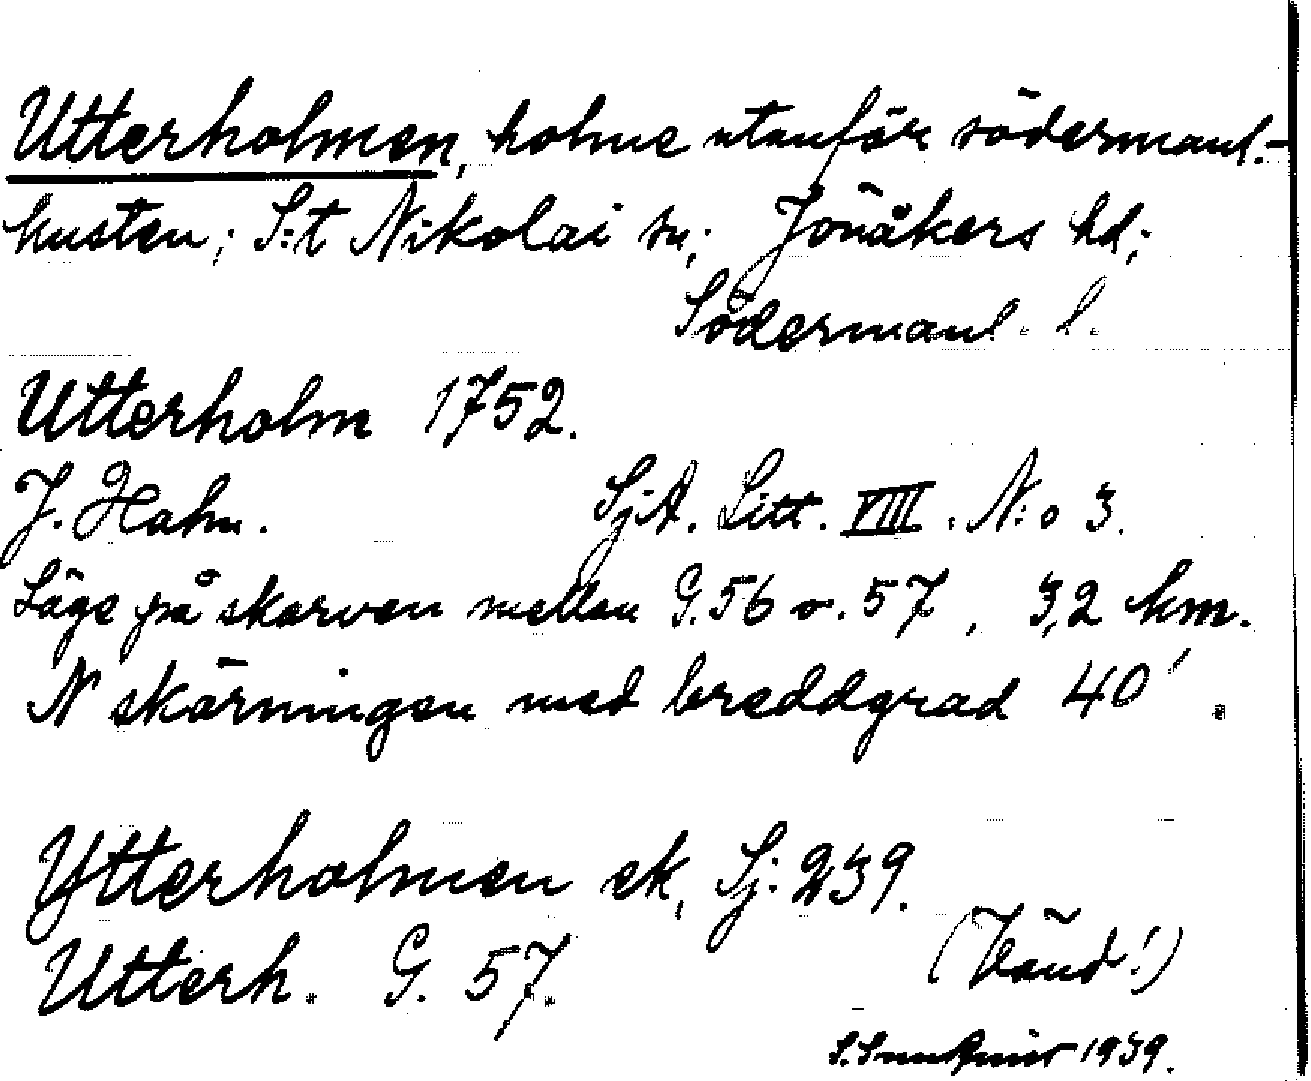 Utterholmen, holme utanför södermanl.-
kusten; S:t Nikolai sn; Jönåkers hd;
Södermanl. l.
Utterholm 1752.
J. Hahn. SjA. Litt. VIII. N:o 3.
Läge på skarven mellan G. 56 o. 57, 3,2 km.
N skärningen med breddgrad 40'.
Ytterholmen ek, Sj: 239.
Utterh. G. 57.
(Vänd!)
1939.